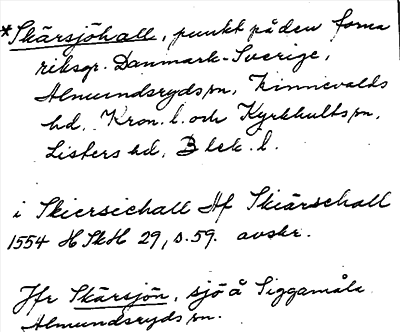 *Skärsjöhall, punkt på den forna
riksgr. Danmark-Sverige,
Almundsryds sn, Kinnevalds
hd, Kron. l. och Kyrkhults sn,
Listers hd, Blek. l.
i Skiersiehall Af Skiärsehall
1554 HSkH 29, s. 59. avskr.
Jfr Skärsjön, sjö å Siggamåla
Almundsryds sn.